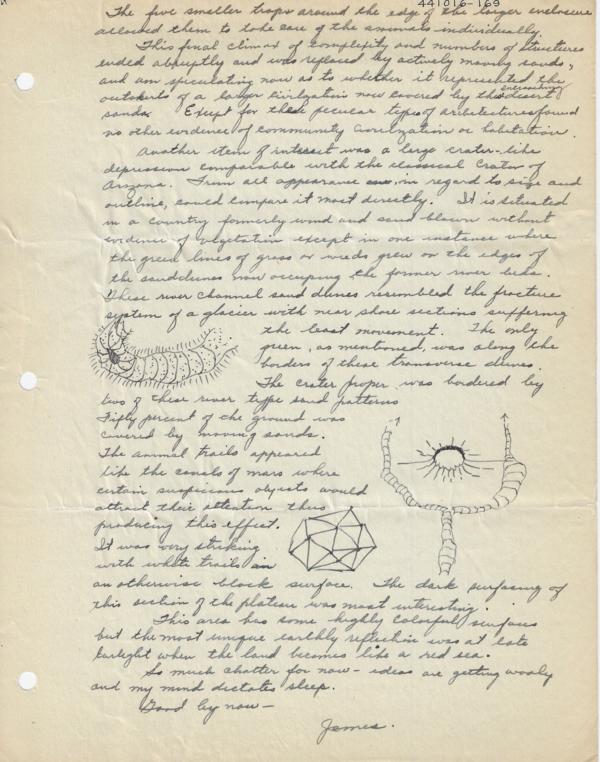 441016-169
The five smaller traps around the edge of the larger enclosure
allowed them to take care of the animals individually.
This final climax of complexity and numbers of structures
ended abruptly and was replaced by actively moving sands,
and am speculating now as to whether it represented the
outskirts of a larger civilization now covered by the encroaching desert
sands. Except for these peculiar types of architecture found
no other evidence of community civilization or habitation.
Another item of interest was a large crater-like
depression comparable with the classical Crater of
Arizona. From all appearance in regard to size and
outline, could compare it most directly. It is situated
in a country formerly wind and sand blown without
evidence of vegetation except in one instance where
the green lines of grass or weeds grew on the edges of
the sand dunes now occupying the former river beds.
These river channel sand dunes resembled the fracture
system of a glacier with near shore sections suffering
the least movement. The only
green, as mentioned, was along the
borders of these transverse dunes.
The crater proper was bordered by
two of these river type sand patterns
Fifty percent of the ground was
covered by moving sands.
The animal trails appeared
like the canals of mars where
certain suspicious objects would
attract their attention thus
producing this effect.
It was very striking
with white trails in
an otherwise black surface. The dark surfacing of
this section of the plateau was most interesting.
This area has some highly colorful surfaces
but the most unique earthly reflection was at late
twilight when the land becomes like a red sea.
So much chatter for now - ideas are getting wooly
and my mind dictates sleep.
Good by now -
James.